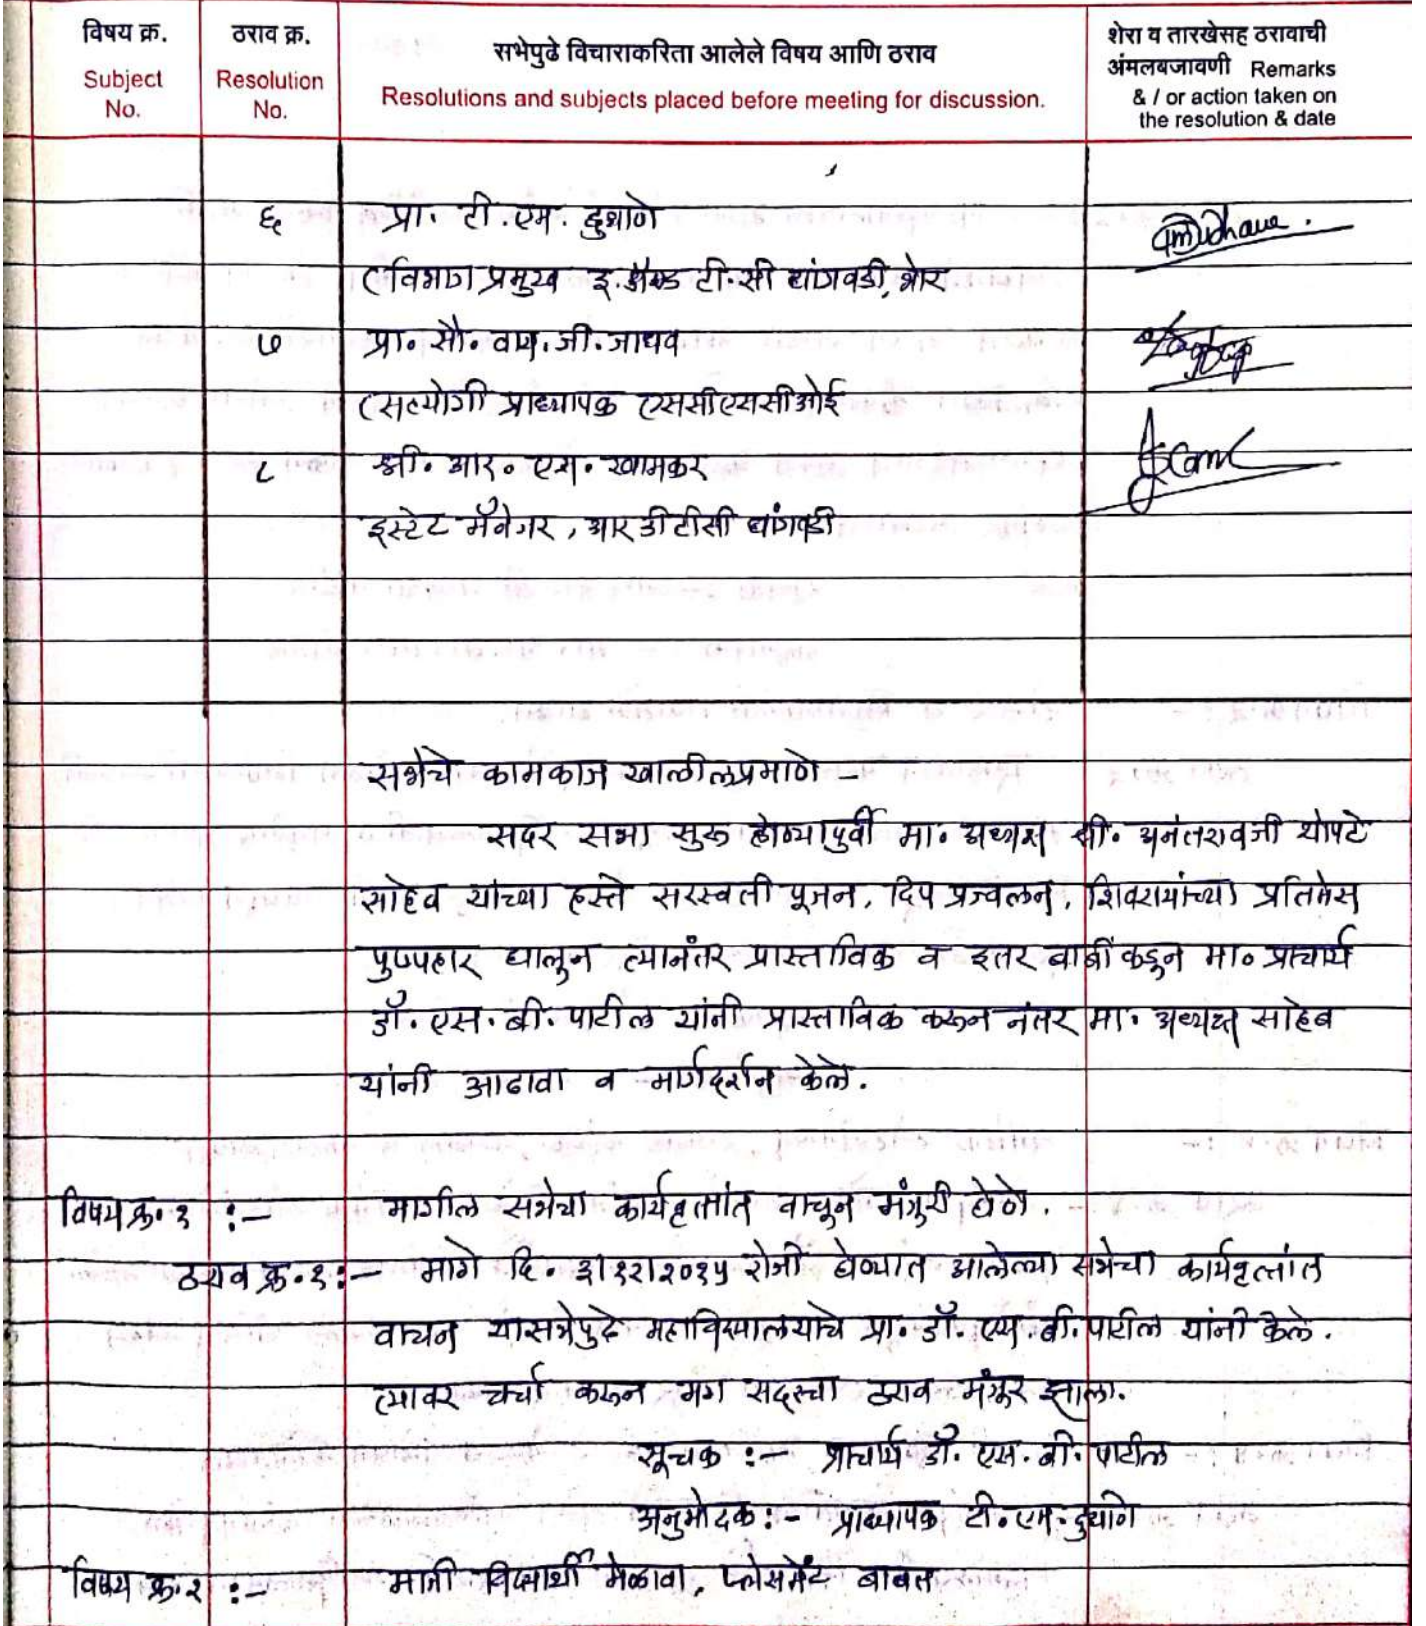 विषय क्र. ठराव क्र. सभेपुढे विचाराकरिता आलेले विषय आणि ठराव शेरा व तारखेसह ठरावाची
अंमलबजावणी Remarks
Subject Resolution Resolutions and subjects placed before meeting for discussion. & / or action taken on
No. No. the resolution & date
६ प्रा. टी.एम. दुधाणे
(विभाग प्रमुख इ.अँण्ड टी.सी धांगवडी, भोर
७ प्रा. सौ. वाय.जी. जाधव
(सहयोगी प्राध्यापक एससीएससीओई
८ श्री. आर. एम. खामकर
इस्टेट मॅनेजर, आरडीटीसी धांगवडी
सभेचे कामकाज खालीलप्रमाणे -
सदर सभा सुरू होण्यापुर्वी मा. अध्यक्ष श्री. अनंतरावजी थोपटे
साहेब यांच्या हस्ते सरस्वती पूजन, दिप प्रज्वलन, शिवरायांच्या प्रतिमेस
पुष्पहार घालुन त्यानंतर प्रास्ताविक व इतर बाबींकडुन मा. प्राचार्य
डॉ. एस. बी. पाटील यांनी प्रास्ताविक करून नंतर मा. अध्यक्ष साहेब
यांनी आढावा व मार्गदर्शन केले.
विषय क्र. १ :- मागील सभेचा कार्यवृत्तांत वाचून मंजुरी होणे.
ठराव क्र. १:- मागे दि. ३।१२।२०१५ रोजी घेण्यात आलेल्या सभेचा कार्यवृत्तांत
वाचन यासभेपुढे महाविद्यालयाचे प्रा. डॉ. एस. बी. पाटील यांनी केले.
त्यावर चर्चा करून मग सदरचा ठराव मंजूर झाला.
सूचक :- प्राचार्य डॉ. एस. बी. पाटील
अनुमोदक:- प्राध्यापक टी. एम. दुधाणे
विषय क्र. २ :- माजी विद्यार्थी मेळावा, प्लेसमेंट बाबत